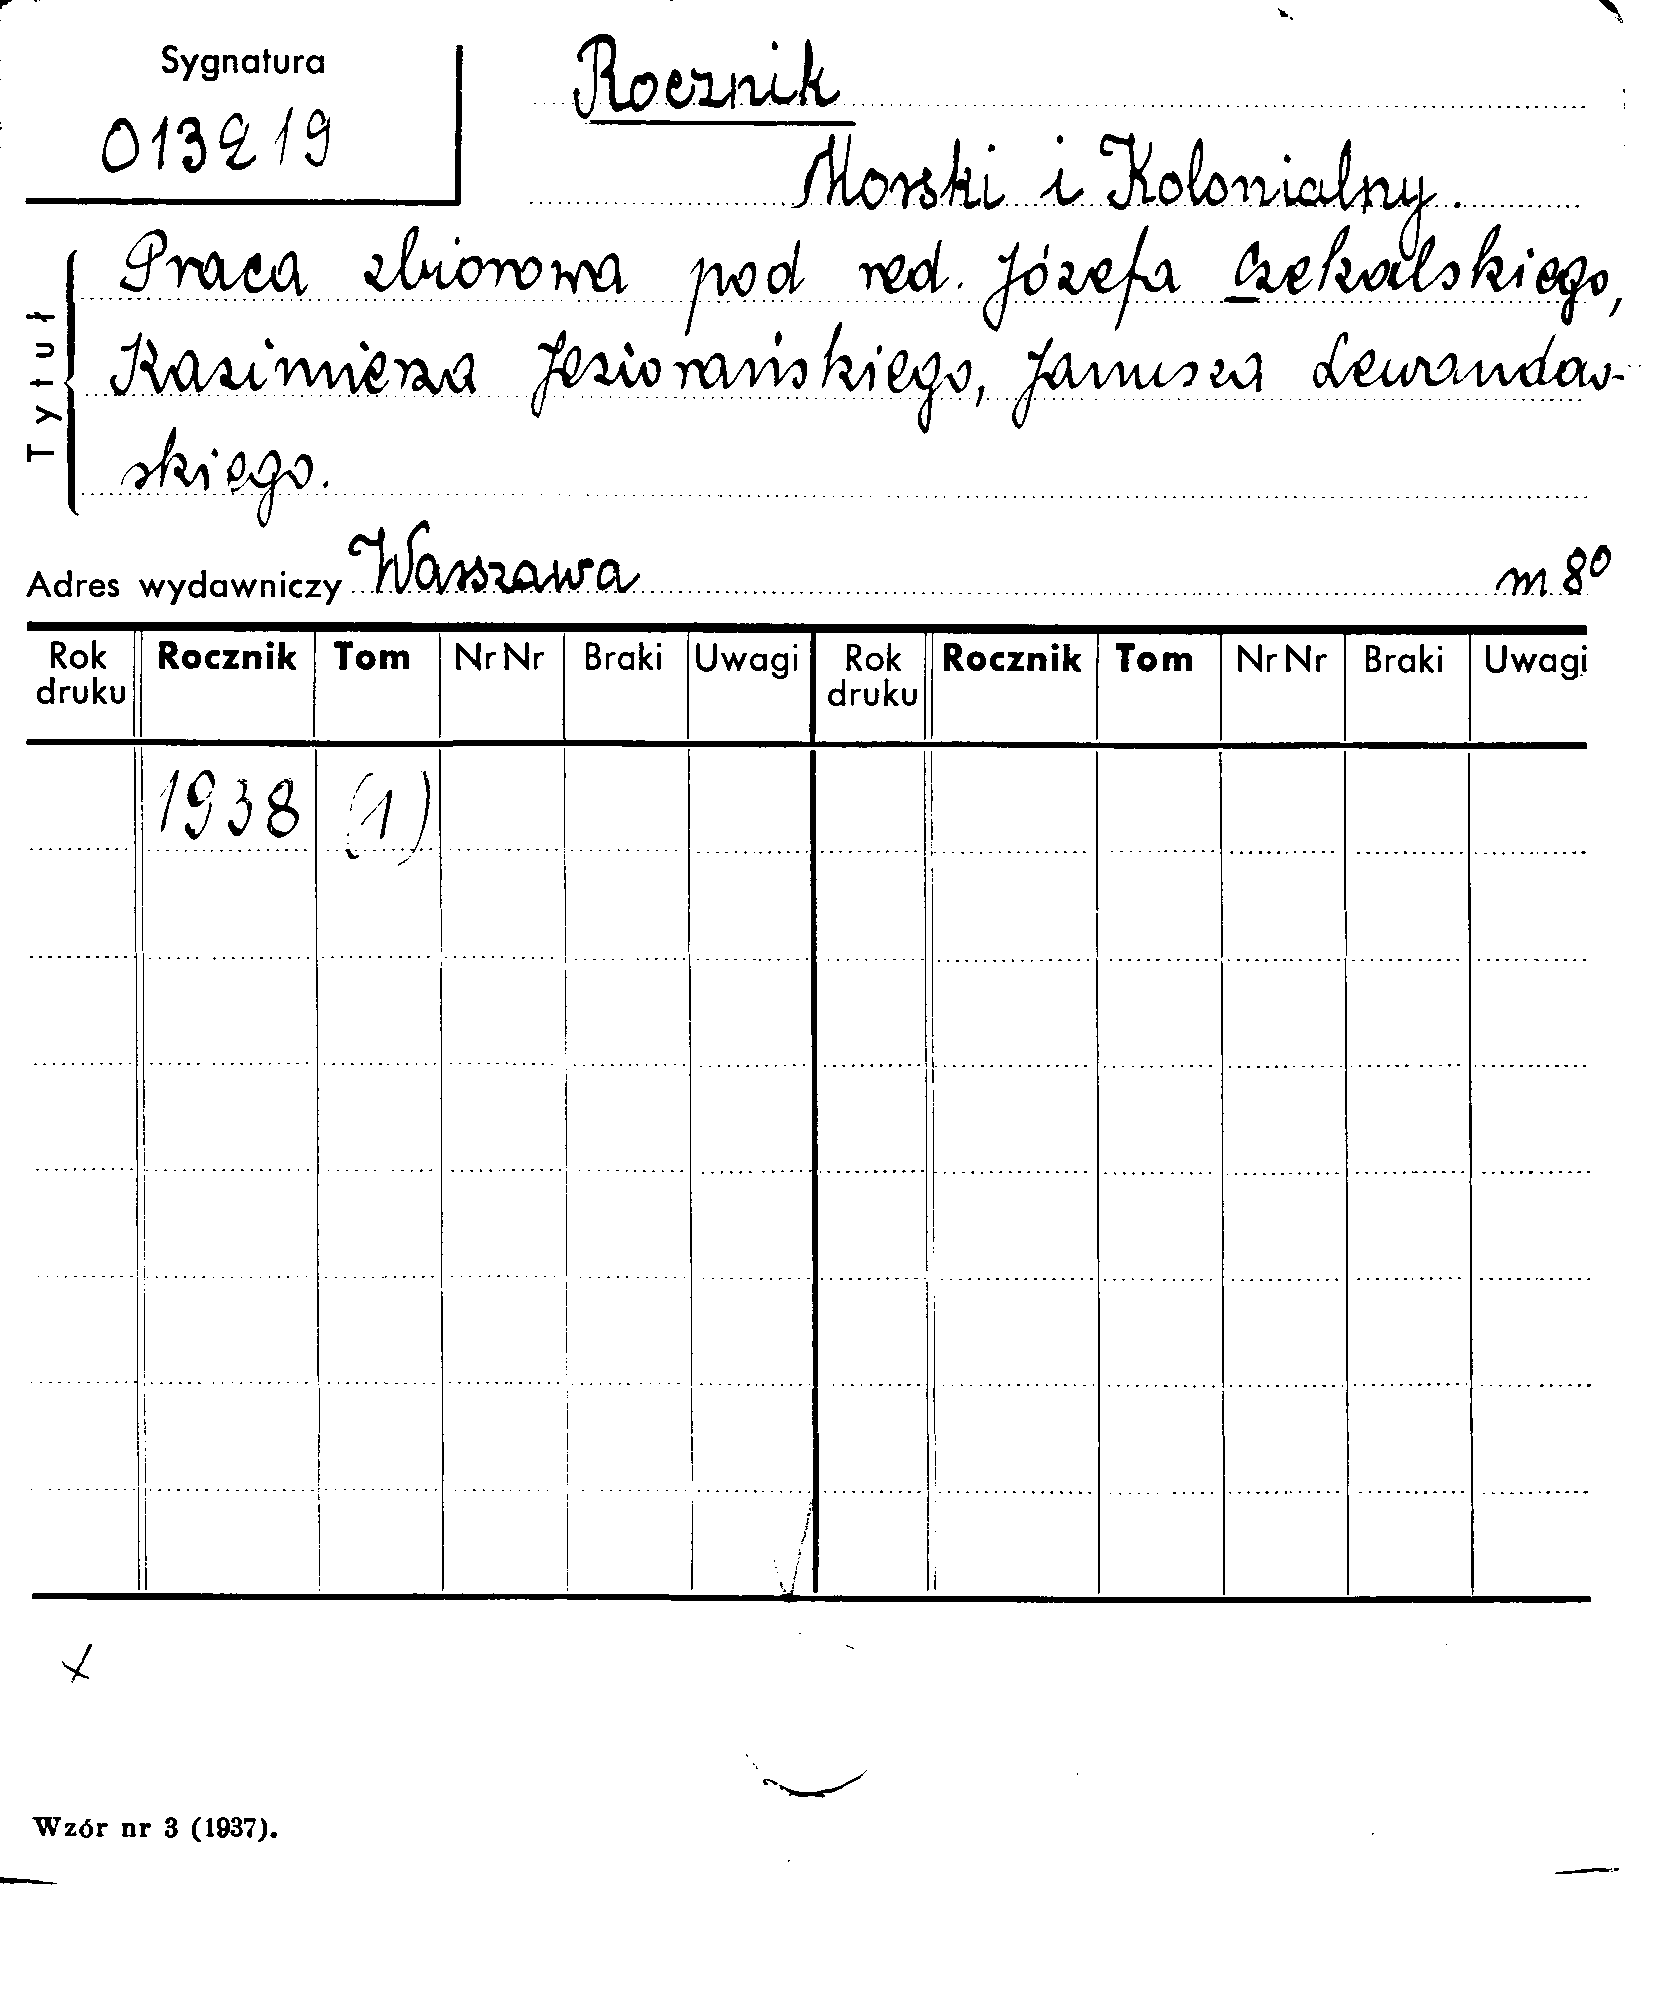 Sygnatura
013219
Rocznik
Morski i Kolonialny.
Tytuł
Praca zbiorowa pod red. Józefa Czekalskiego,
Kazimierza Jeziorańskiego, Janusza Lewandow-
skiego.
Adres wydawniczy Warszawa m 8°
Rok druku Rocznik Tom Nr Nr Braki Uwagi Rok druku Rocznik Tom Nr Nr Braki Uwagi
1938 (1)
x
Wzór nr 3 (1937).